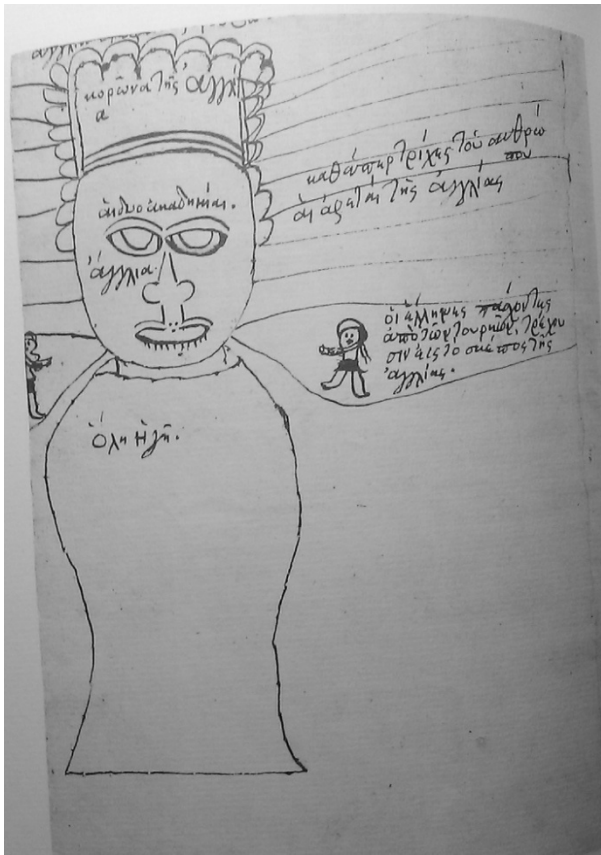 κορῶνα τῆς ἀγγλί
α
καθάπερ τρίχες τοῦ ἀνθρώ
που
ἁι ἀρεταὶ τῆς ἀγγλίας
ἁι δυο ἀκαδημίαι.
ἀγγλία
ὁι ἕλληνες
ἀπο τῶν τουρκῶν τρέχου
σιν εἰς τὸ σκέπος τῆς
ἀγγλίας.
ὅλη ἡ γῆ.